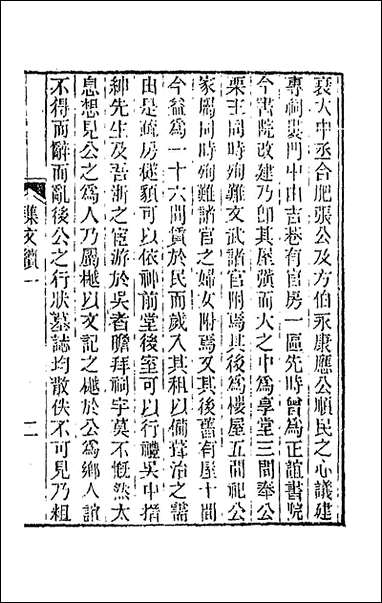 衰大中丞合肥張公及方伯永康應公順民之心議建
專祠婁門中由吉巷有官房一區先時曾爲正誼書院
今書院改建乃卽其屋漢而大之中爲享堂三間奉公
栗主同時殉難文武諸官附焉其後爲樓屋五間祀公
家屬同時殉難諸官之婦女附焉又其後舊有屋十間
今益爲一十六間賃於民而歲入其租以備葺治之需
由是疏房檖䫉可以依神前堂後室可以行禮吳中搢
紳先生及吾浙之宦游於吳者瞻拜祠宇莫不慨然太
息想見公之爲人乃屬樾以文記之樾於公爲鄉人誼
不得而辭而亂後公之行狀墓誌均散佚不可見乃粗
雜文續一
二